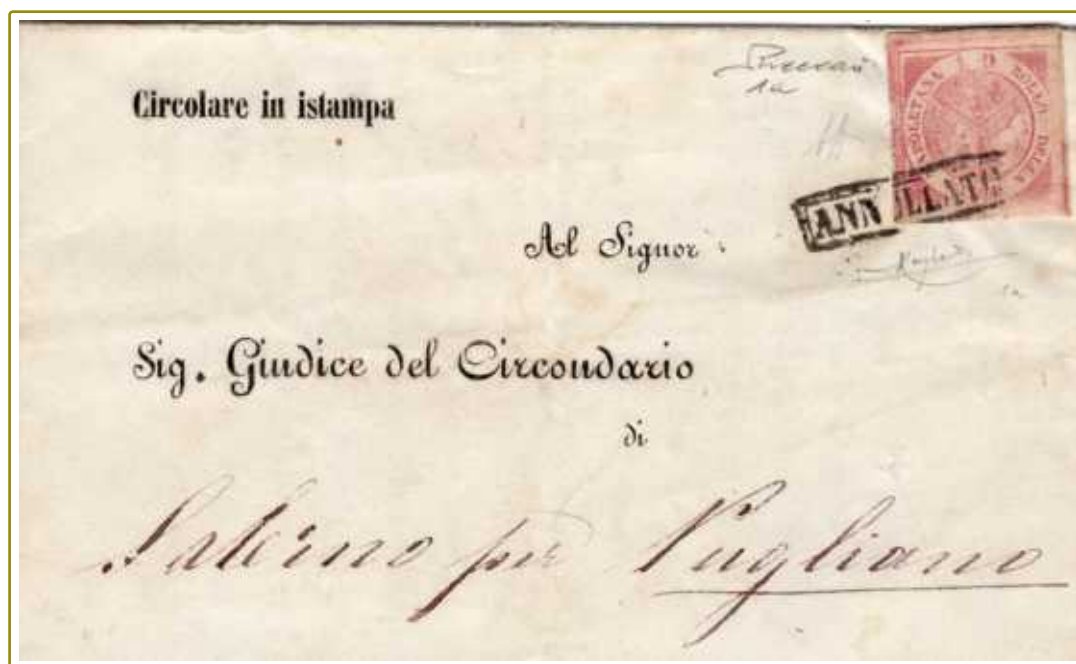 Circolare in istampa
1a
BOLLO DELLA
ANNULLATO
Al Signor
Sig. Giudice del Circondario
di
Salerno per Pugliano